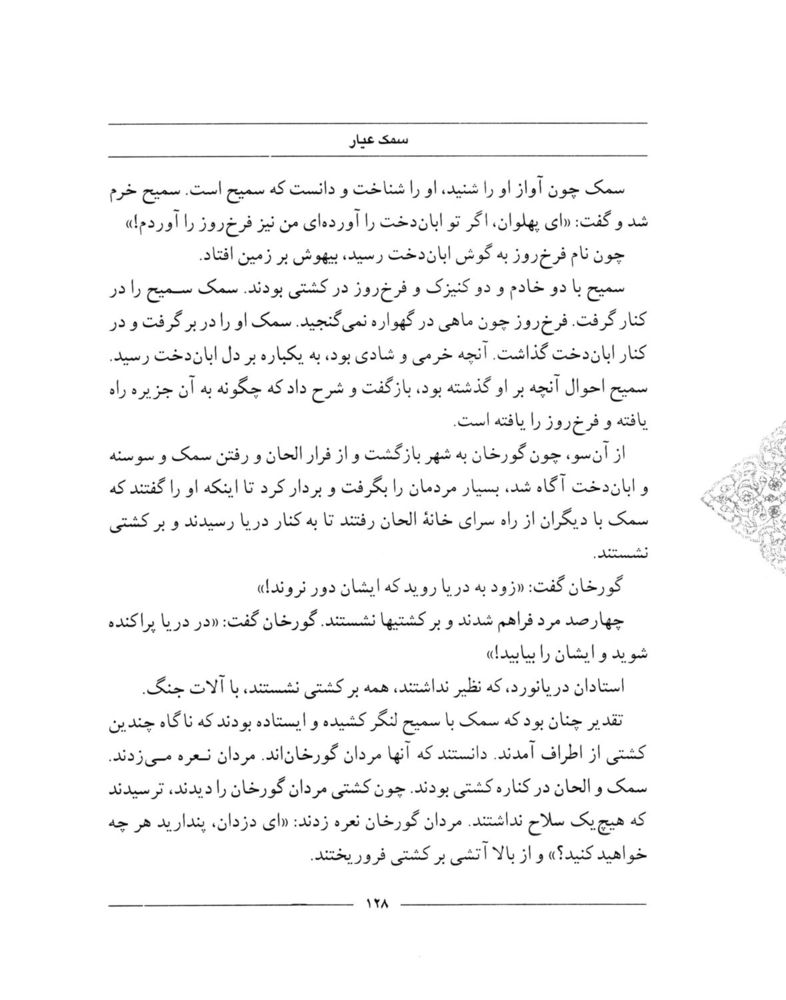 سمک عیار
سمک چون آواز او را شنید، او را شناخت و دانست که سمیح است. سمیح خرم
شد و گفت: «ای پهلوان، اگر تو ابان‌دخت را آورده‌ای من نیز فرخ‌روز را آوردم!»
چون نام فرخ‌روز به گوش ابان‌دخت رسید، بیهوش بر زمین افتاد.
سمیح با دو خادم و دو کنیزک و فرخ‌روز در کشتی بودند. سمک سـمیح را در
کنار گرفت. فرخ‌روز چون ماهی در گهواره نمی‌گنجید. سمک او را در بر گرفت و در
کنار ابان‌دخت گذاشت. آنچه خرمی و شادی بود، به یکباره بر دل ابان‌دخت رسید.
سمیح احوال آنچه بر او گذشته بود، بازگفت و شرح داد که چگونه به آن جزیره راه
یافته و فرخ‌روز را یافته است.
از آن‌سو، چون گورخان به شهر بازگشت و از فرار الحان و رفتن سمک و سوسنه
و ابان‌دخت آگاه شد، بسیار مردمان را بگرفت و بردار کرد تا اینکه او را گفتند که
سمک با دیگران از راه سرای خانهٔ الحان رفتند تا به کنار دریا رسیدند و بر کشتی
نشستند.
گورخان گفت: «زود به دریا روید که ایشان دور نروند!»
چهارصد مرد فراهم شدند و بر کشتیها نشستند. گورخان گفت: «در دریا پراکنده
شوید و ایشان را بیابید!»
استادان دریانورد، که نظیر نداشتند، همه بر کشتی نشستند، با آلات جنگ.
تقدیر چنان بود که سمک با سمیح لنگر کشیده و ایستاده بودند که ناگاه چندین
کشتی از اطراف آمدند. دانستند که آنها مردان گورخان‌اند. مردان نـعره مـی‌زدند.
سمک و الحان در کناره کشتی بودند. چون کشتی مردان گورخان را دیدند، ترسیدند
که هیچ‌یک سلاح نداشتند. مردان گورخان نعره زدند: «ای دزدان، پندارید هر چه
خواهید کنید؟» و از بالا آتشی بر کشتی فروریختند.
۱۲۸